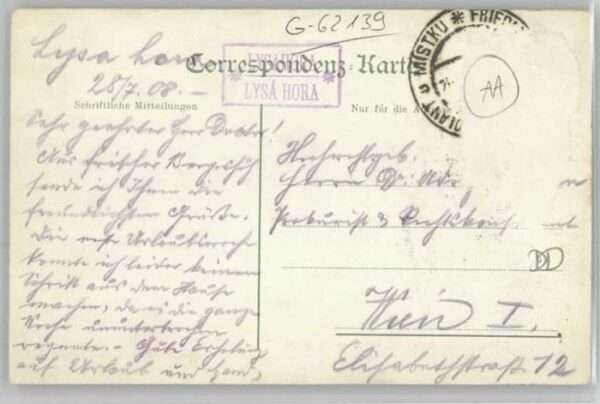 G-62139
Lysa hora
28/7. 08. –
Correspondenz-Karte
LYSÁ HORA
Schriftliche Mitteilungen
Nur für die
MÍSTKU * FRIEDL
AA
Sehr geehrter Herr Doktor!
Aus frischer Bergeshöh
sende ich Ihnen die
freundlichsten Grüße.
Die erste Urlaubswoche
konnte ich leider keinen
Schritt aus dem Hause
machen, da es die ganze
Woche ununterbrochen
regnete. – Gute
auf Urlaub und
Hochwohlgeb.
Herrn Dr.
Prokurist &
DD
Wien I.
Elisabethstraße 12